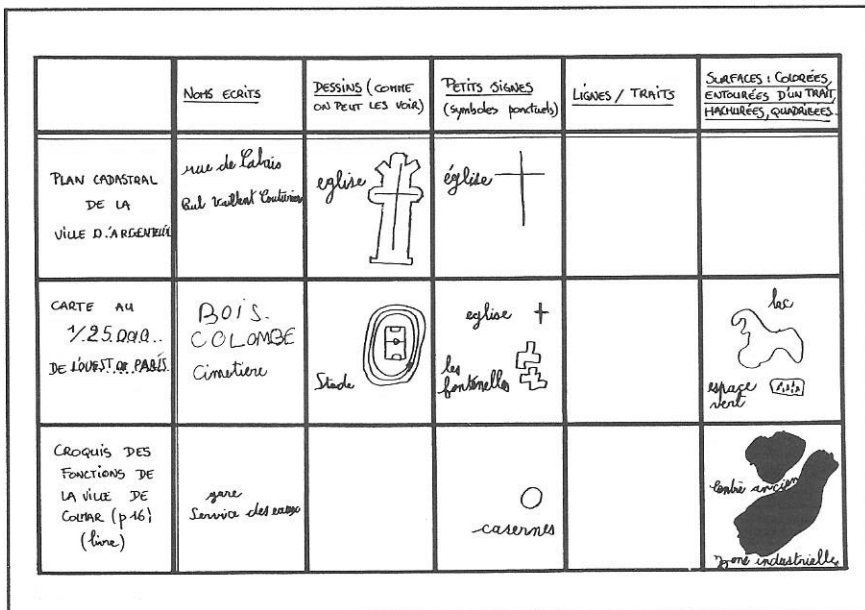 NOMS ECRITS
DESSINS (COMME
ON PEUT LES VOIR)
PETITS SIGNES
(symboles ponctuels)
LIGNES / TRAITS
SURFACES : COLORÉES,
ENTOURÉES D'UN TRAIT,
HACHURÉES, QUADRILLÉES.
PLAN CADASTRAL
DE LA
VILLE D'ARGENTEUIL
rue de Calais
Paul Vaillant Couturier
eglise
église
CARTE AU
1/25.000..
DE L'OUEST DE PARIS.
BOIS.
COLOMBE
Cimetiere
Stade
eglise
les
fontenelles
lac
espace
vert
CROQUIS DES
FONCTIONS DE
LA VILLE DE
COLMAR (p 16)
(livre)
gare
Service des eaux
casernes
Centre ancien
zone industrielle